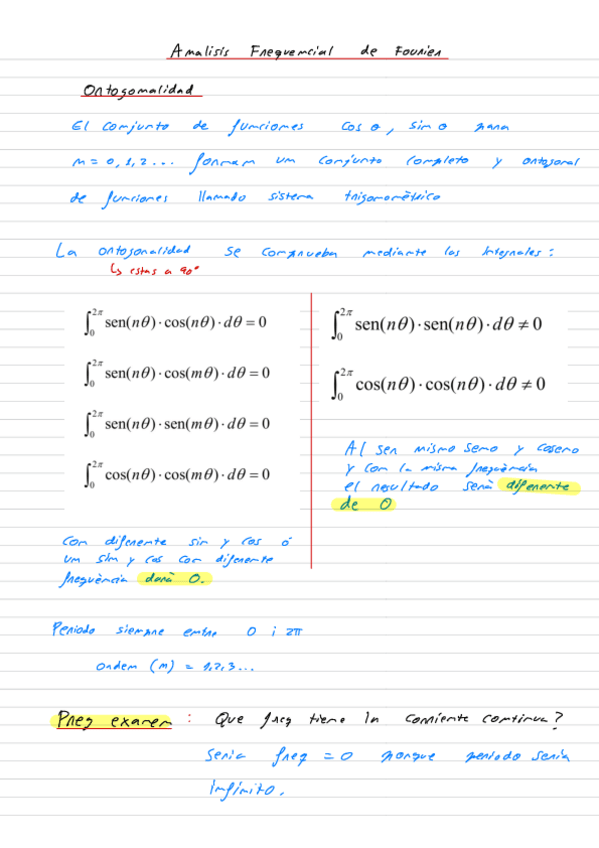 Analisis Frequencial de Fourier
Ortogonalidad
El conjunto de funciones cos θ, sin θ para
n = 0, 1, 2... forman un conjunto completo y ortogonal
de funciones llamado sistema trigonométrico
La ortogonalidad se comprueba mediante las integrales:
↳ estas a 90°
∫₀^{2π} sen(nθ)·cos(nθ)·dθ = 0
∫₀^{2π} sen(nθ)·cos(mθ)·dθ = 0
∫₀^{2π} sen(nθ)·sen(mθ)·dθ = 0
∫₀^{2π} cos(nθ)·cos(mθ)·dθ = 0
Con diferente sin y cos ó
un sin y cos con diferente
frequència darà 0.
∫₀^{2π} sen(nθ)·sen(nθ)·dθ ≠ 0
∫₀^{2π} cos(nθ)·cos(nθ)·dθ ≠ 0
Al ser mismo seno y coseno
y con la misma frequència
el resultado serà diferente
de 0
Periodo siempre entre 0 i 2π
orden (n) = 1,2,3...
Preg examen: Que freq tiene la corriente continua?
Seria freq = 0 porque periodo seria
infinito.